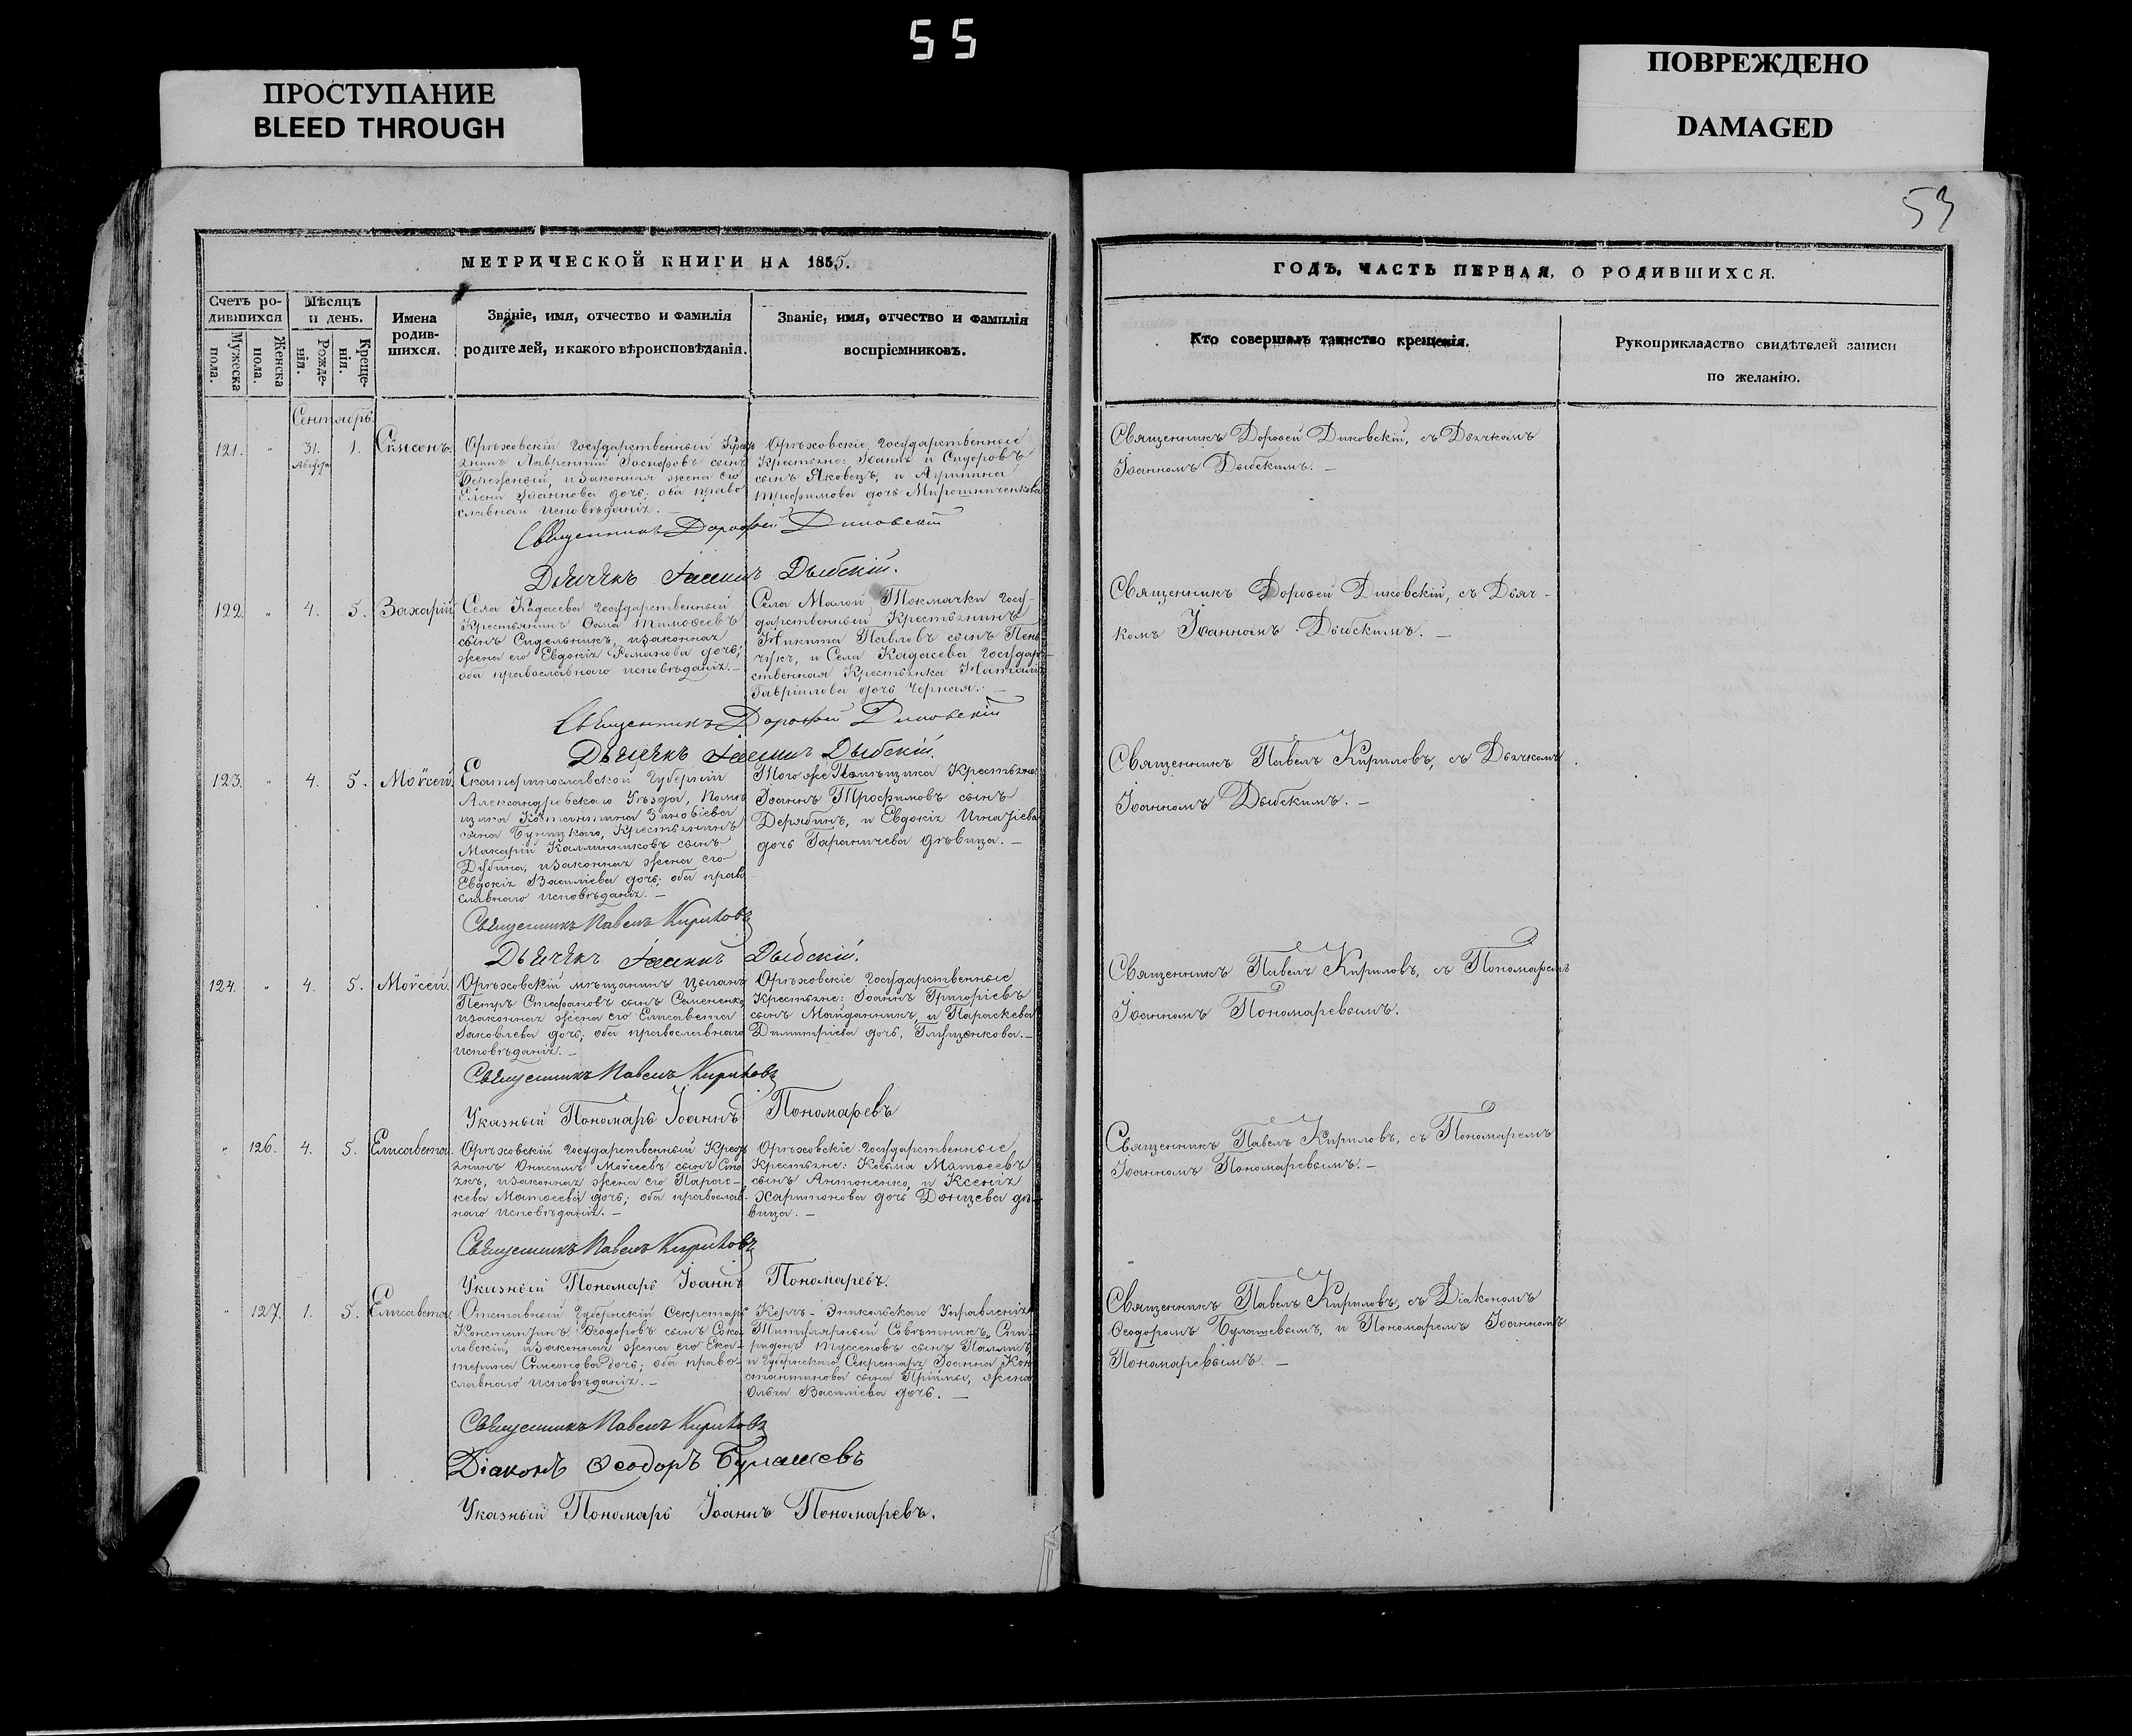 55
ПРОСТУПАНИЕ
BLEED THROUGH
ПОВРЕЖДЕНО
DAMAGED
53
МЕТРИЧЕСКОЙ КНИГИ НА 1855.
Счетъ ро-
дившихся
Мужеска
пола.
Женска
пола.
Мѣсяцъ
и день.
Рожде-
нія.
Креще-
нія.
Имена
родив-
шихся.
Званіе, имя, отчество и фамилія
родителей, и какого вѣроисповѣданія.
Званіе, имя, отчество и фамилія
воспріемниковъ.
Сентябрь.
121. " 31. Августа 1. Симеонъ.
Орѣховскій Государственный Кресть
янинъ Лаврентій сынъ
и законная жена его
Елена Іоаннова дочь; оба право
славнаго исповѣданія. —
Орѣховскіе Государственные
Крестьяне: Іоаннъ Сидоровъ
сынъ Яковецъ, и Агрипина
Трофимова дочь Мирошниченкова
Священникъ Дорофей Диковскій
Дьячекъ Іоаннъ Дыбскій.
122. " 4. 5. Захарій
Села Кадаева Государственный
Крестьянинъ Ѳома Тимоѳеевъ
сынъ Сидельникъ, и законная
жена его Евдокія Романова дочь;
оба православнаго исповѣданія. —
Села Малой Токмачки Госу-
дарственный Крестьянинъ
Никита Павловъ сынъ
и Села Кадаева Государ-
ственная Крестьянка Наталія
Гавріилова дочь Черная. —
Священникъ Дорофей Диковскій
Дьячекъ Іоаннъ Дыбскій.
123. " 4. 5. Моѵсей
Екатеринославской Губерніи
Александровскаго Уѣзда, Помѣ
щика Константина Зиновіева
сына Крестьянинъ
Макарій Каллиниковъ сынъ
Дубина, и законная жена его
Евдокія Василіева дочь; оба право
славнаго исповѣданія. —
Того же Помѣщика Крестьяне
Іоаннъ Трофимовъ сынъ
Дерябинъ, и Евдокія Игнатіева
дочь Гараничева дѣвица. —
Священникъ Павелъ Кириловъ
Дьячекъ Іоаннъ Дыбскій.
124. " 4. 5. Моѵсей.
Орѣховскій мѣщанинъ Цыганъ
Петръ Стефановъ сынъ Семененко,
и законная жена его Елисавета
Іаковлева дочь; оба православнаго
исповѣданія. —
Орѣховскіе Государственные
Крестьяне: Іоаннъ Григоріевъ
сынъ Майданникъ, и Параскева
Димитріева дочь, Глущенкова. —
Священникъ Павелъ Кириловъ
Указный Пономарь Іоаннъ Пономаревъ
" 126. 4. 5. Елисавета.
Орѣховскій Государственный Кресть
янинъ Онисимъ Моѵсеевъ сынъ
и законная жена его Парас-
кева Матѳеева дочь; оба православ-
наго исповѣданія. —
Орѣховскіе Государственные
Крестьяне: Косьма Матѳеевъ
сынъ Антоненко, и Ксенія
Харитонова дочь Донцева дѣ-
вица. —
Священникъ Павелъ Кириловъ
Указный Пономарь Іоаннъ Пономаревъ.
" 127. 1. 5. Елисавета
Отставный Губернскій Секретарь
Константинъ Ѳеодоровъ сынъ Соко-
ловскій, и законная жена его Ека-
терина Симеонова дочь; оба право-
славнаго исповѣданія. —
Керчь-Эникольскаго Управленія
Титулярный Совѣтникъ, Спи-
ридонъ сынъ
и Губернскаго Секретаря Іоанна Кон
стантинова сына жена
Ольга Василіева дочь. —
Священникъ Павелъ Кириловъ
Діаконъ Ѳеодоръ Булашевъ
Указный Пономарь Іоаннъ Пономаревъ.
ГОДЪ, ЧАСТЬ ПЕРВАЯ, О РОДИВШИХСЯ.
Кто совершалъ таинство крещенія.
Рукоприкладство свидѣтелей записи
по желанію.
Священникъ Дорофей Диковскій, съ Дьячкомъ
Іоанномъ Дыбскимъ. —
Священникъ Дорофей Диковскій, съ Дьяч-
комъ Іоанномъ Дыбскимъ. —
Священникъ Павелъ Кириловъ, съ Дьячкомъ
Іоанномъ Дыбскимъ. —
Священникъ Павелъ Кириловъ, съ Пономаремъ
Іоанномъ Пономаревымъ.
Священникъ Павелъ Кириловъ, съ Пономаремъ
Іоанномъ Пономаревымъ. —
Священникъ Павелъ Кириловъ, съ Діакономъ
Ѳеодоромъ Булашевымъ, и Пономаремъ Іоанномъ
Пономаревымъ. —